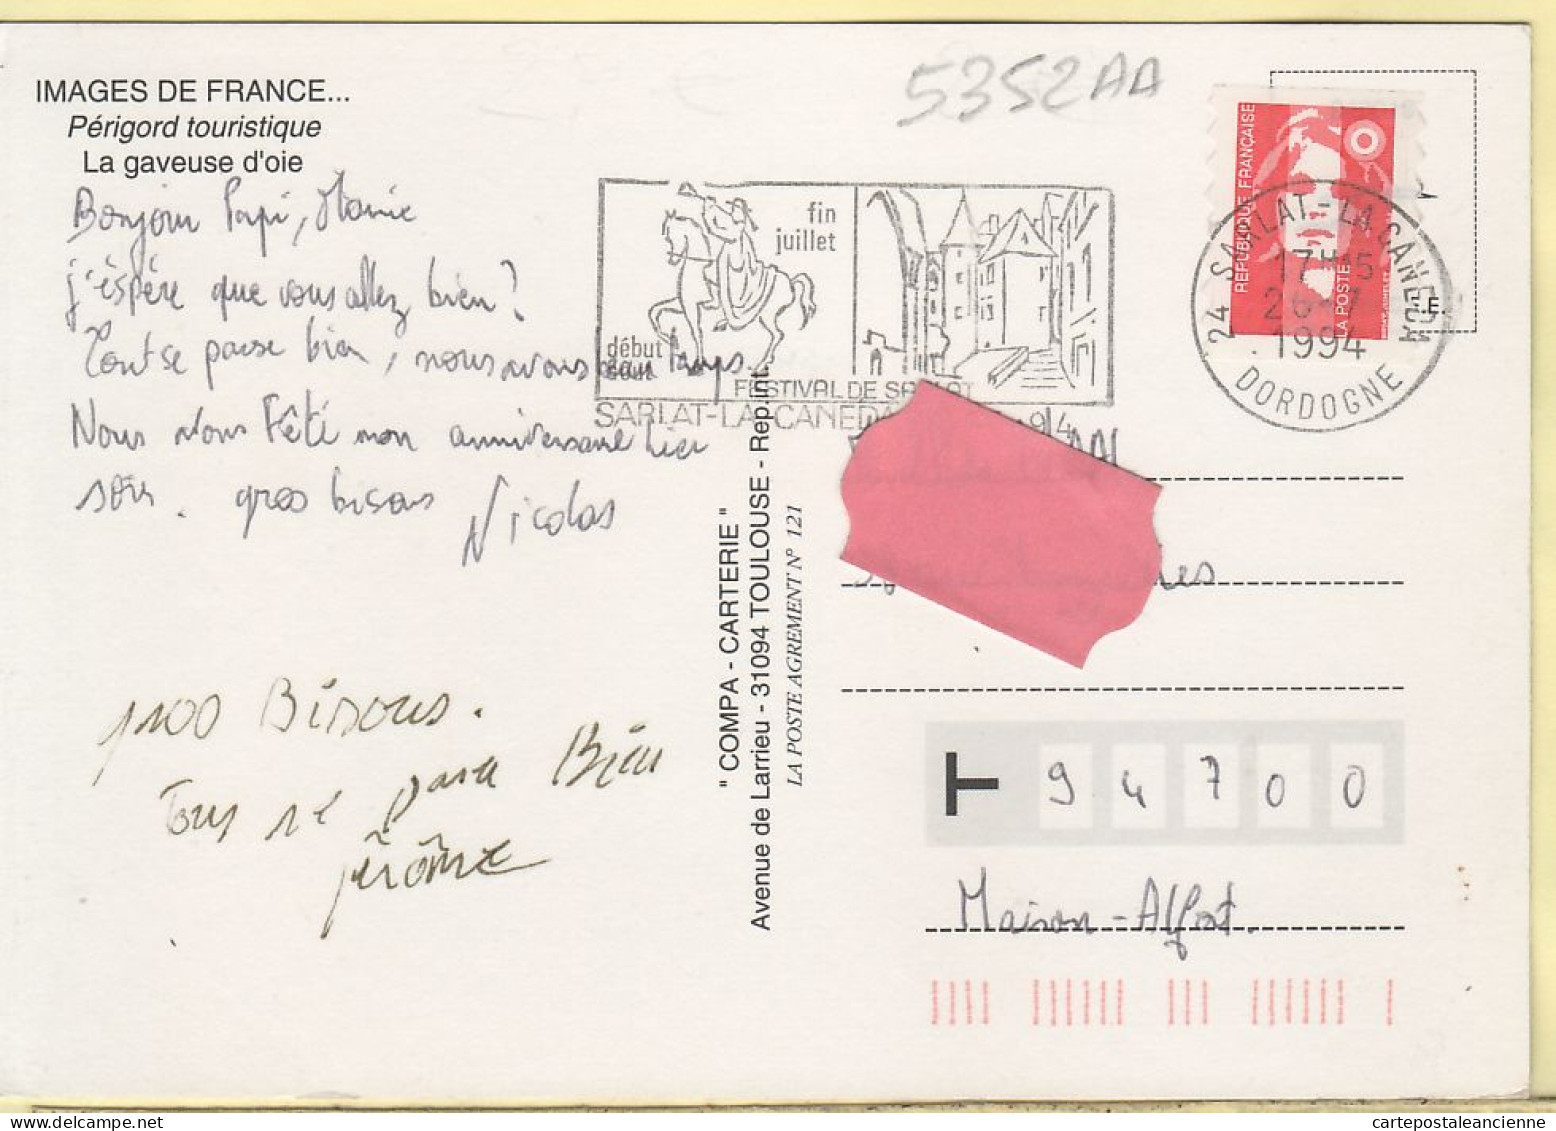 5352AA
IMAGES DE FRANCE...
Périgord touristique
La gaveuse d'oie
Bonjour Papi, Mamie
j'éspère que vous allez bien?
Tout se passe bien, nous avons beau temps.
Nous avons fêté mon anniversaire hier
soir. gros bisous Nicolas
gros Bisous.
Tous se passe Bien
jérôme
fin
juillet
début
août
FESTIVAL DE SARLAT
SARLAT-LA-CANEDA
94
RÉPUBLIQUE FRANÇAISE
LA POSTE
24 SARLAT-LA-CANEDA
17H15
26-7
1994
DORDOGNE
" COMPA - CARTERIE "
Avenue de Larrieu - 31094 TOULOUSE - Rep.int.
LA POSTE AGREMENT N° 121
T 94700
Maison-Alfort.
cartepostaleancienne